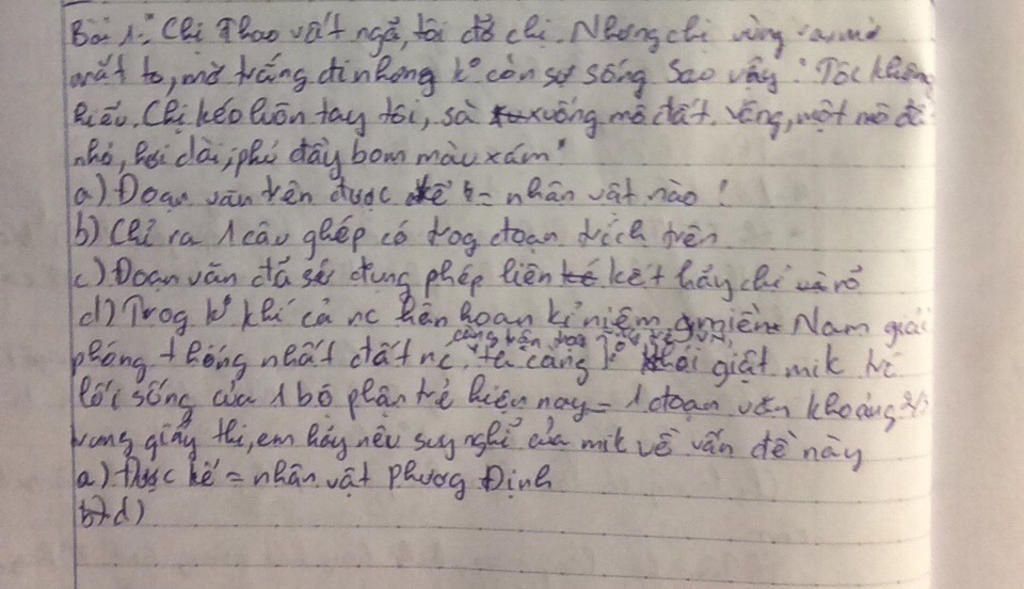 Bài 1: "Chị Thao vất ngã, tôi đỡ chị. Nhưng chị vùng ra, mở
mắt to, mờ trắng đi nhong k° còn sự sống Sao vậy? Tôi không
hiểu. Chị kéo luôn tay tôi, sà xuống mô đất. Vâng, một mô đất
nhỏ, hơi dài, phủ đầy bom màu xám"
a) Đoạn văn trên được kể = nhân vật nào?
b) Chỉ ra 1 câu ghép có trog đoạn trích trên
c) Đoạn văn đã sử dụng phép liên kết hãy chỉ rõ
d) Trog k° khí cả nc hân hoan kỉ niệm miền Nam giải
phóng thống nhất đất nc, ta càng k° khỏi giật mik trc
lối sống của 1 bộ phận trẻ hiện nay = 1 đoạn văn khoảng 2/3
trang giấy thi, em hãy nêu suy nghĩ của mik về vấn đề này
a) Được kể = nhân vật Phương Định
d)